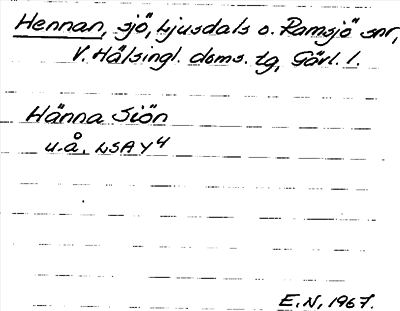 Hennan, sjö, Ljusdals o. Ramsjö snr,
V. Hälsingl. doms. tg, Gävl. l.
Hänna Siön
u.å. LSA Y4
E.N, 1967.